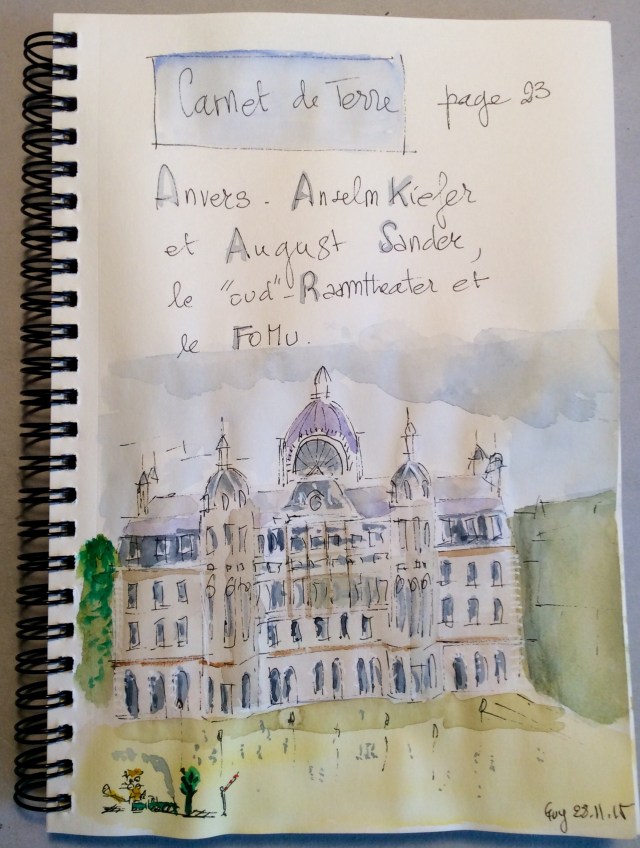 Carnet de Terre page 23
Anvers. Anselm Kiefer
et August Sander,
le "oud"-Raamtheater et
le FoMu.
Guy 23.11.15